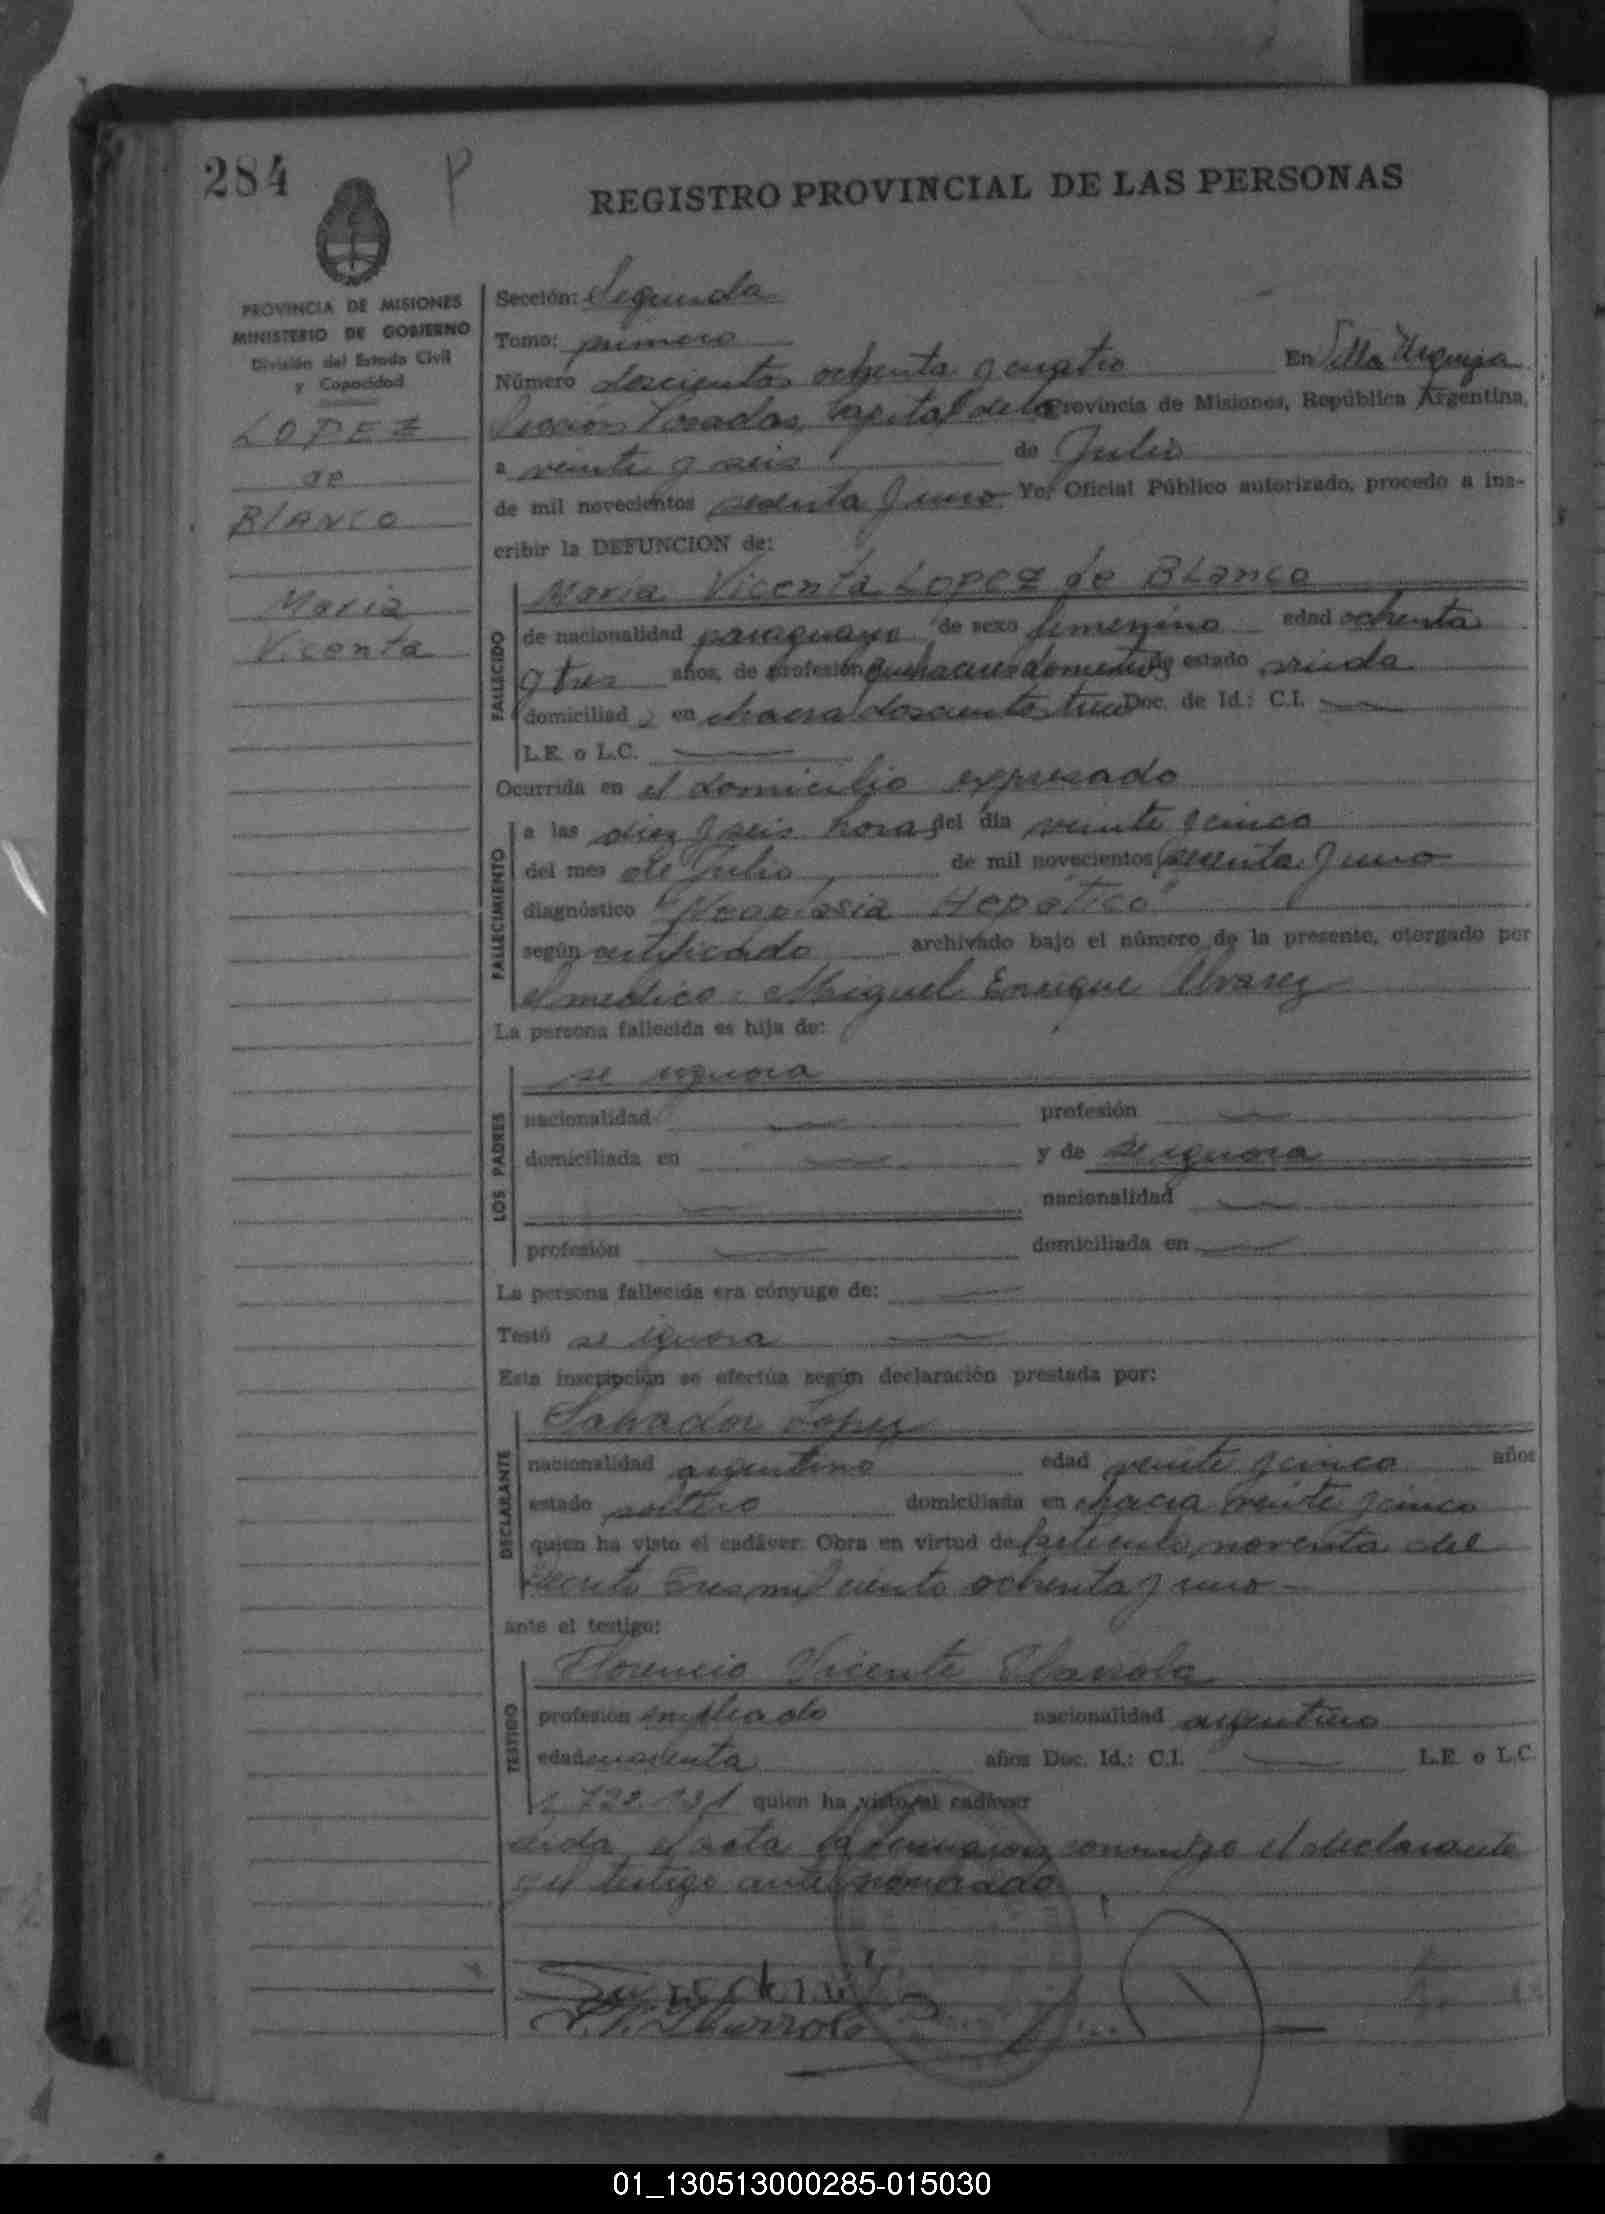 284
P
REGISTRO PROVINCIAL DE LAS PERSONAS
PROVINCIA DE MISIONES
MINISTERIO DE GOBIERNO
División del Estado Civil
y Capacidad
LOPEZ
de
BLANCO
Maria
Vicenta
Sección: Segunda
Tomo: primero
Número doscientos ochenta y cuatro En Villa Urquiza
Sección Posadas, Capital de la Provincia de Misiones, República Argentina,
a veinte y seis de Julio
de mil novecientos sesenta y uno Yo, Oficial Público autorizado, procedo a ins-
cribir la DEFUNCION de:
FALLECIDO
Maria Vicenta LOPEZ de BLanco
de nacionalidad paraguaya de sexo femenino edad ochenta
y tres años, de profesión quehaceres domesticos de estado viuda
domiciliad a en chacra doscientos tres Doc. de Id.: C.I.
L.E. o L.C.
Ocurrida en el domicilio expresado
FALLECIMIENTO
a las diez y seis horas del día veinte y cinco
del mes de Julio de mil novecientos sesenta y uno
diagnóstico "Neoplasia Hepatico"
según certificado archivado bajo el número de la presente, otorgado por
el medico: Miguel Enrique Alvarez
La persona fallecida es hija de:
LOS PADRES
se ignora
nacionalidad profesión
domiciliada en y de se ignora
nacionalidad
profesión domiciliada en
La persona fallecida era cónyuge de:
Testó se ignora
Esta inscripción se efectúa según declaración prestada por:
DECLARANTE
Salvador Lopez
nacionalidad argentino edad veinte y cinco años
estado soltero domiciliada en chacra veinte y cinco
quien ha visto el cadáver. Obra en virtud de articulo noventa del
decreto tres mil ciento ochenta y uno
ante el testigo:
TESTIGO
Florencio Vicente
profesión empleado nacionalidad argentino
edad años Doc. Id.: C.I. L.E. o L.C.
quien ha visto el cadáver
Leida el acta la firmaron conmigo el declarante
y el testigo ante nombrado
01_130513000285-015030